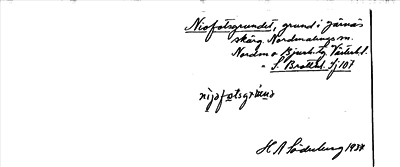 Niofotsgrundet, grund i Järnäs
skärg. Nordmalings sn.
Nordm. o. Bjurh. tg Västerb. l.
S. Brottet. Sj 107
nijofotsgrunna
H A Söderberg 1934